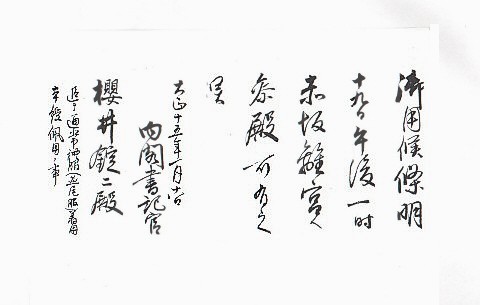 御用候條明
十九日午後一時
赤坂離宮ヘ
参殿可有之
大正十五年一月十八日
内閣書記官
櫻井錠二殿
追テ通常服
本綬佩用ノ事